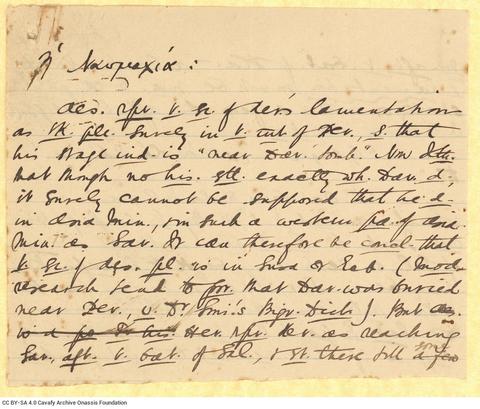 Ἡ Ναυμαχία :
Aes. rpr. t. sc. of his lamentation
as tk. plc. surely in t. cut of Per., s. that
his stage ind. is "near Dar. tomb". Now
that though no his. stt. exactly wh. Dar. d.,
it surely cannot be supposed that he d-
in Asia Min., in such a western pa. of Asia
Min. as Sar. It can therefore be concl. that
t. sc. of Aes. pl. is in Susa or Ecb. (Mod.
research tend to pr. that Dar. was buried
near Per., v. Dr Smi.'s Bigr. Dict.). But
Her. rpr. Xer. as reaching
Sar. aft. t. bat. of Sal., & st. there till some
CC BY-SA 4.0 Cavafy Archive Onassis Foundation